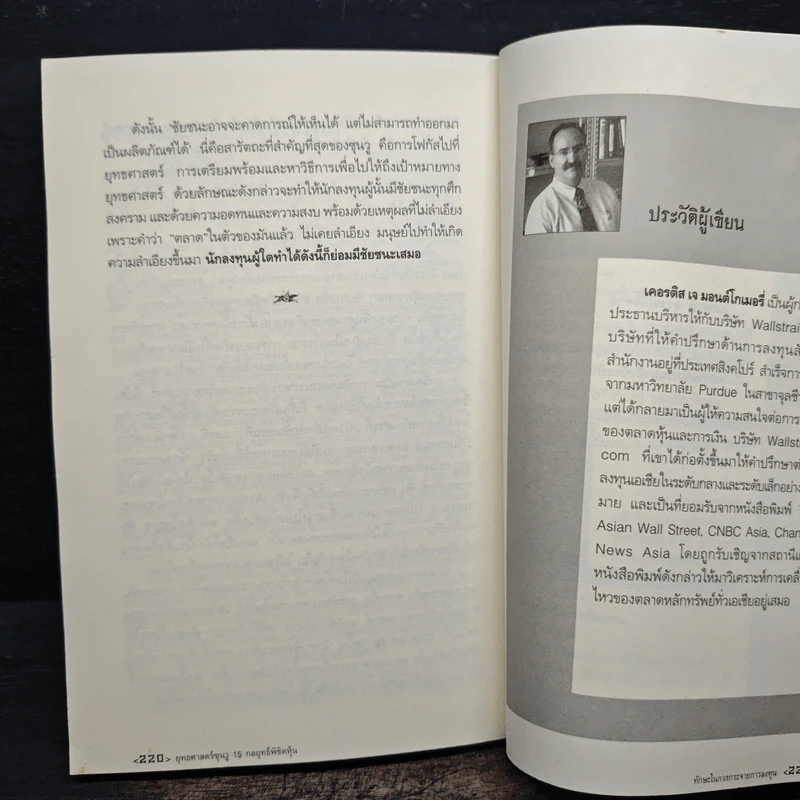 ดังนั้น 'ชัยชนะอาจจะคาดการณ์ให้เห็นได้ แต่ไม่สามารถทำออกมา
เป็นผลิตภัณฑ์ได้' นี่คือสารัตถะที่สำคัญที่สุดของซุนวู คือการโฟกัสไปที่
ยุทธศาสตร์ การเตรียมพร้อมและหาวิธีการเพื่อไปให้ถึงเป้าหมายทาง
ยุทธศาสตร์ ด้วยลักษณะดังกล่าวจะทำให้นักลงทุนผู้นั้นมีชัยชนะทุกศึก
สงคราม และด้วยความอดทนและความสงบ พร้อมด้วยเหตุผลที่ไม่ลำเอียง
เพราะคำว่า "ตลาด"ในตัวของมันแล้ว ไม่เคยลำเอียง มนุษย์ไปทำให้เกิด
ความลำเอียงขึ้นมา นักลงทุนผู้ใดทำได้ดังนี้ก็ย่อมมีชัยชนะเสมอ
<220> ยุทธศาสตร์ซุนวู 15 กลยุทธ์พิชิตหุ้น
ประวัติผู้เขียน
เคอรติส เจ มอนต์โกเมอรี่ เป็นผู้ก
ประธานบริหารให้กับบริษัท Wallstrai
บริษัทที่ให้คำปรึกษาด้านการลงทุนส
สำนักงานอยู่ที่ประเทศสิงคโปร์ สำเร็จกา
จากมหาวิทยาลัย Purdue ในสาขาจุลชี
แต่ได้กลายมาเป็นผู้ให้ความสนใจต่อการ
ของตลาดหุ้นและการเงิน บริษัท Wallst
com ที่เขาได้ก่อตั้งขึ้นมาให้คำปรึกษาต
ลงทุนเอเชียในระดับกลางและระดับเล็กอย่าง
มาย และเป็นที่ยอมรับจากหนังสือพิมพ์
Asian Wall Street, CNBC Asia, Chan
News Asia โดยถูกรับเชิญจากสถานีแ
หนังสือพิมพ์ดังกล่าวให้มาวิเคราะห์การเคลื่
ไหวของตลาดหลักทรัพย์ทั่วเอเชียอยู่เสมอ
ทักษะในการกระจายการลงทุน <22